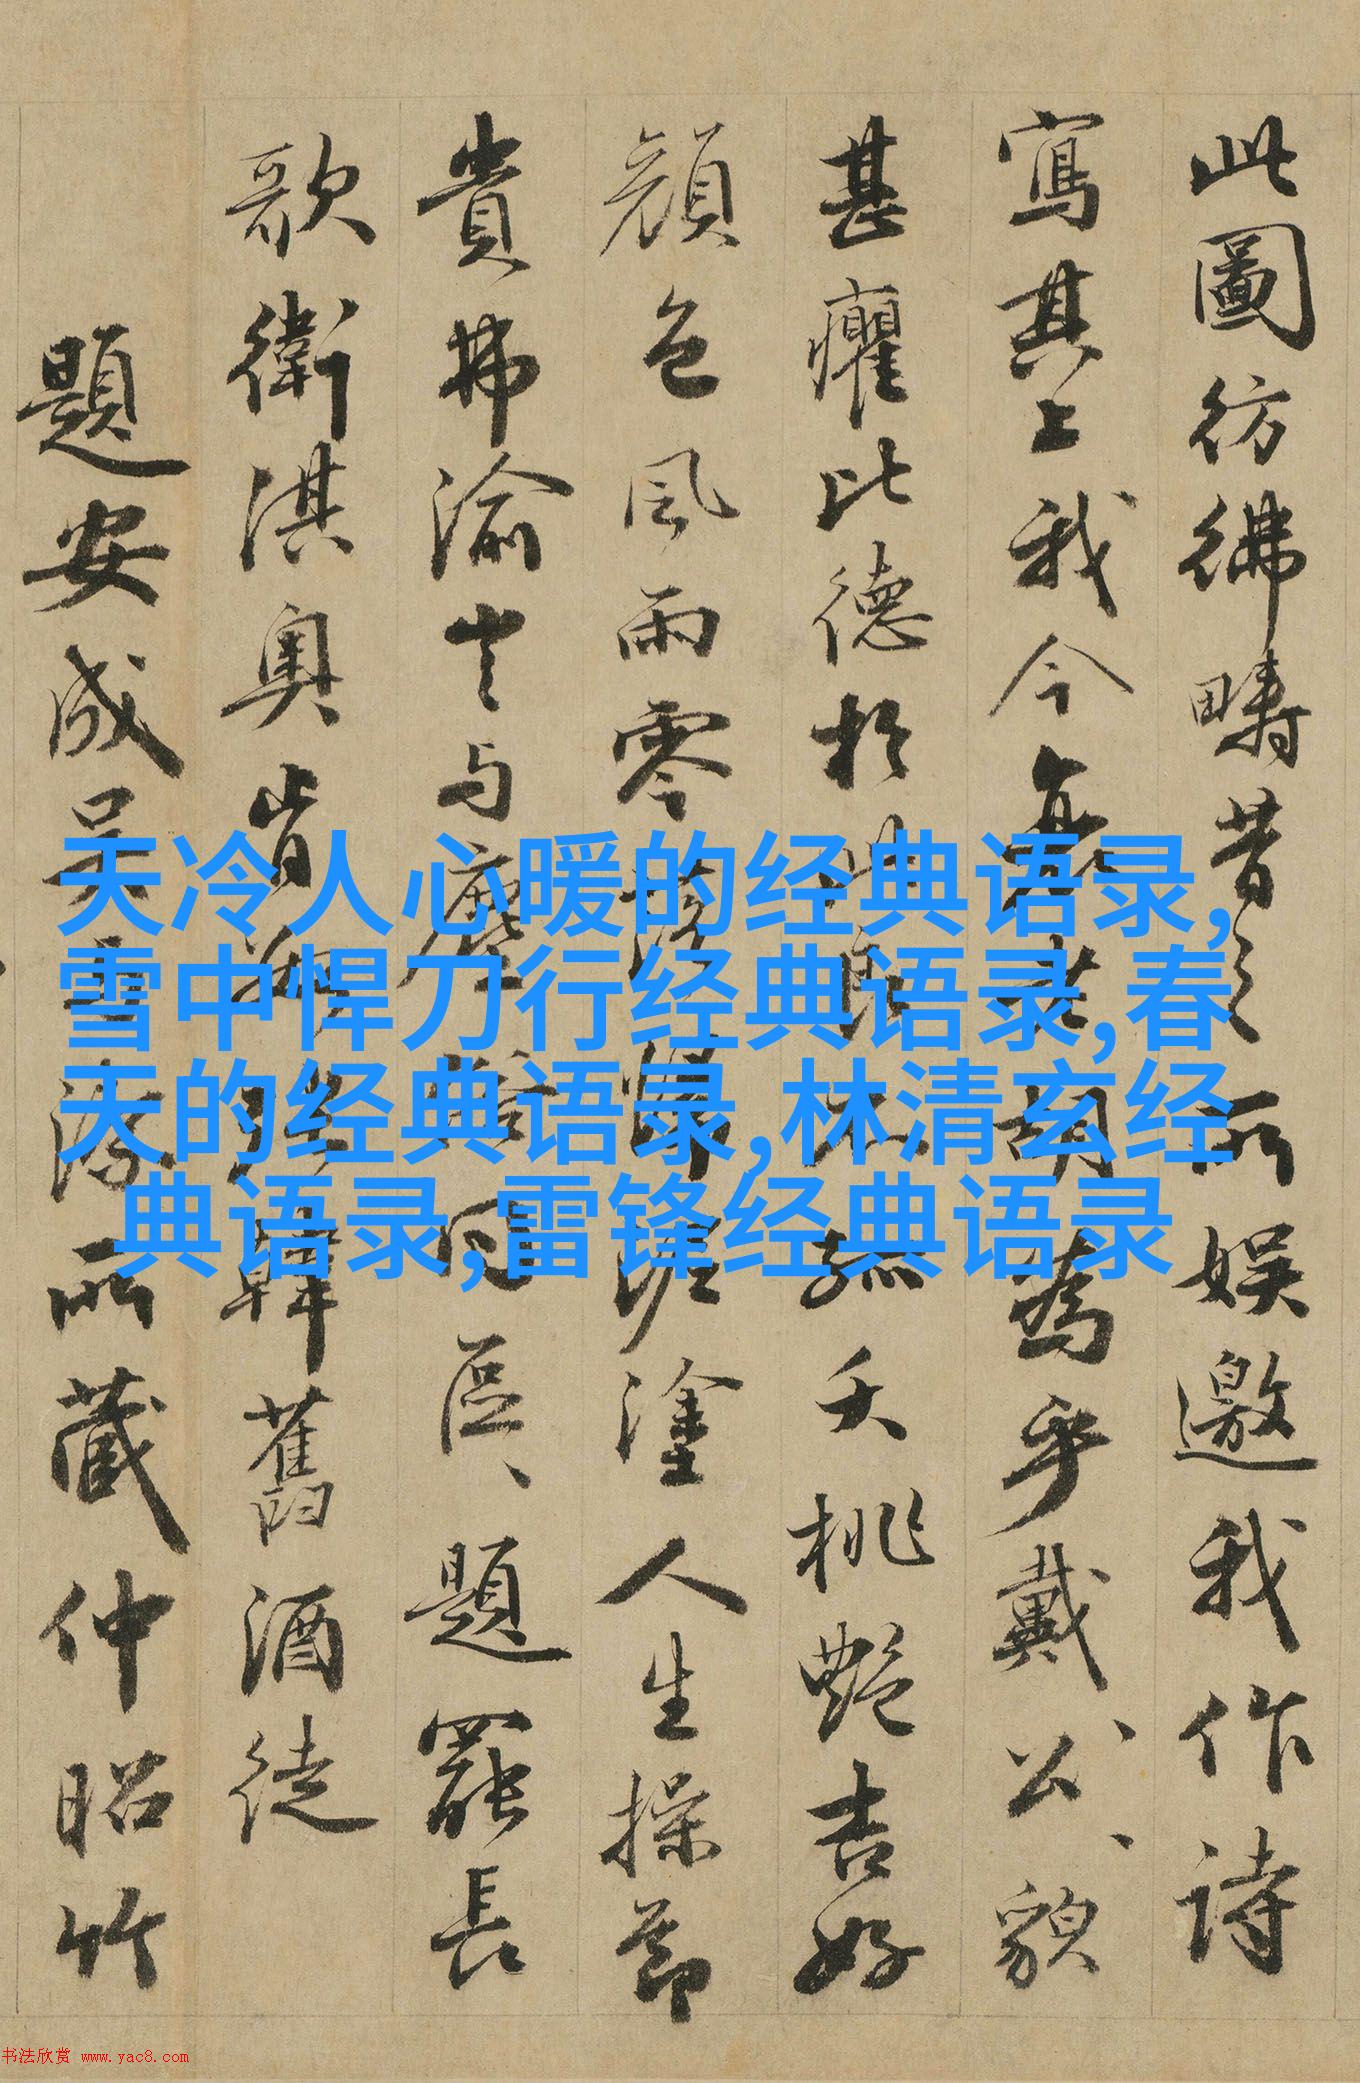 此圖彷彿疇昔之所娛邀我作詩
寫其上我今衰老胡為乎戴公貌
甚癯比德於
夭桃艷吉好
顏色風雨零
塗人生操節
貴弗渝
與塵
區題罷長
歌衛淇奧肯
韓舊酒徒
題安成吳雪
所藏仲昭竹
天冷人心暖的经典语录,
雪中悍刀行经典语录,春
天的经典语录,林清玄经
典语录,雷锋经典语录
书法欣赏 www.yac8.com